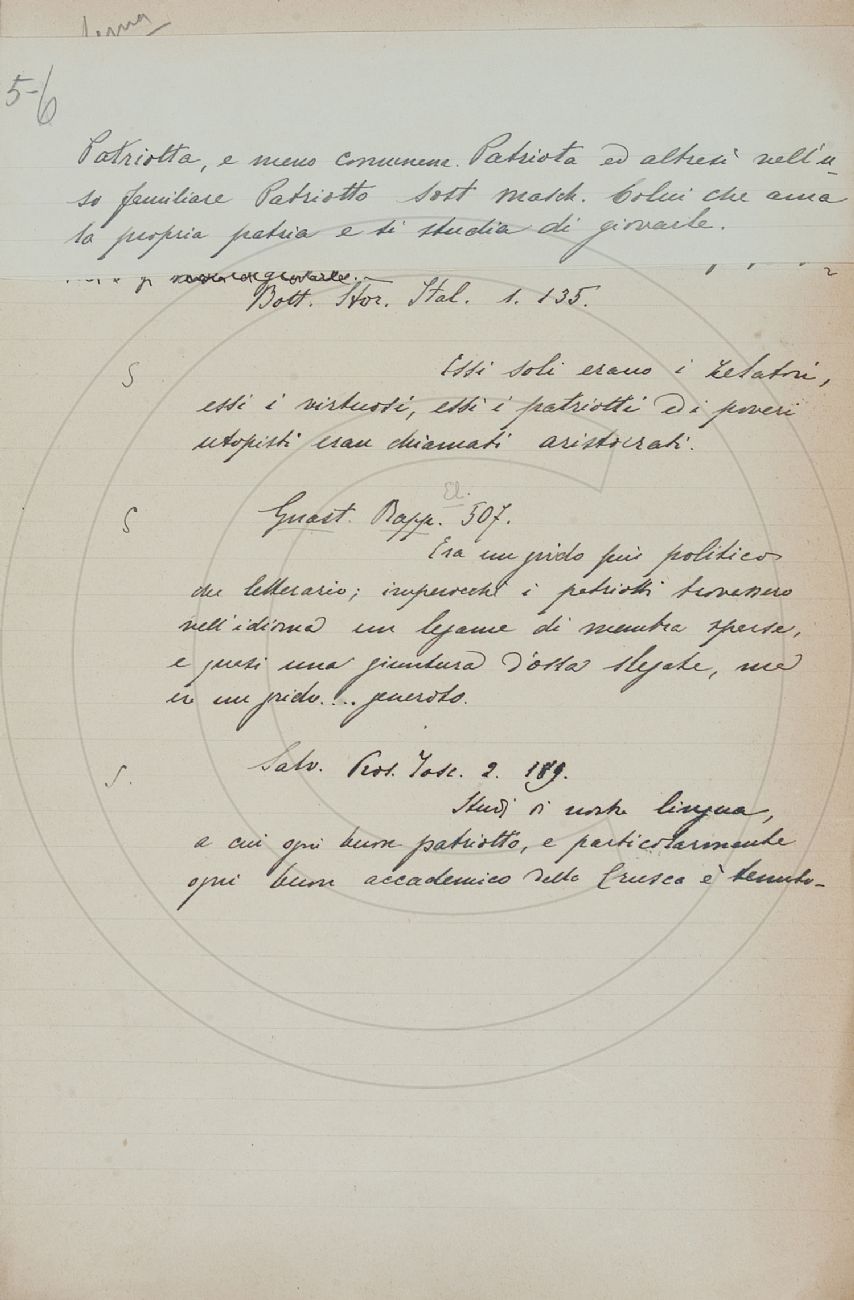 lema
5-6
Patriotta, e meno comunem. Patriota ed altresì nell'u-
so familiare Patriotto Sost masch. Colui che ama
la propria patria e si studia di giovarle.
Bott. Stor. Ital. 1. 135.
S Essi soli erano i zelatori,
essi i virtuosi, essi i patriotti ed i poveri
utopisti eran chiamati aristocrati.
El.
S Guast. Rapp. 507.
Era un grido più politico
che letterario; imperocchè i patriotti trovassero
nell'idioma un legame di membra sparse,
e quasi una giuntura d'ossa slegate, ma
era un grido.... generoso.
S. Salv. Pros. Tosc. 2. 189.
Studj di nostra lingua,
a cui ogni buon patriotto, e particolarmente
ogni buon accademico della Crusca è tenuto-